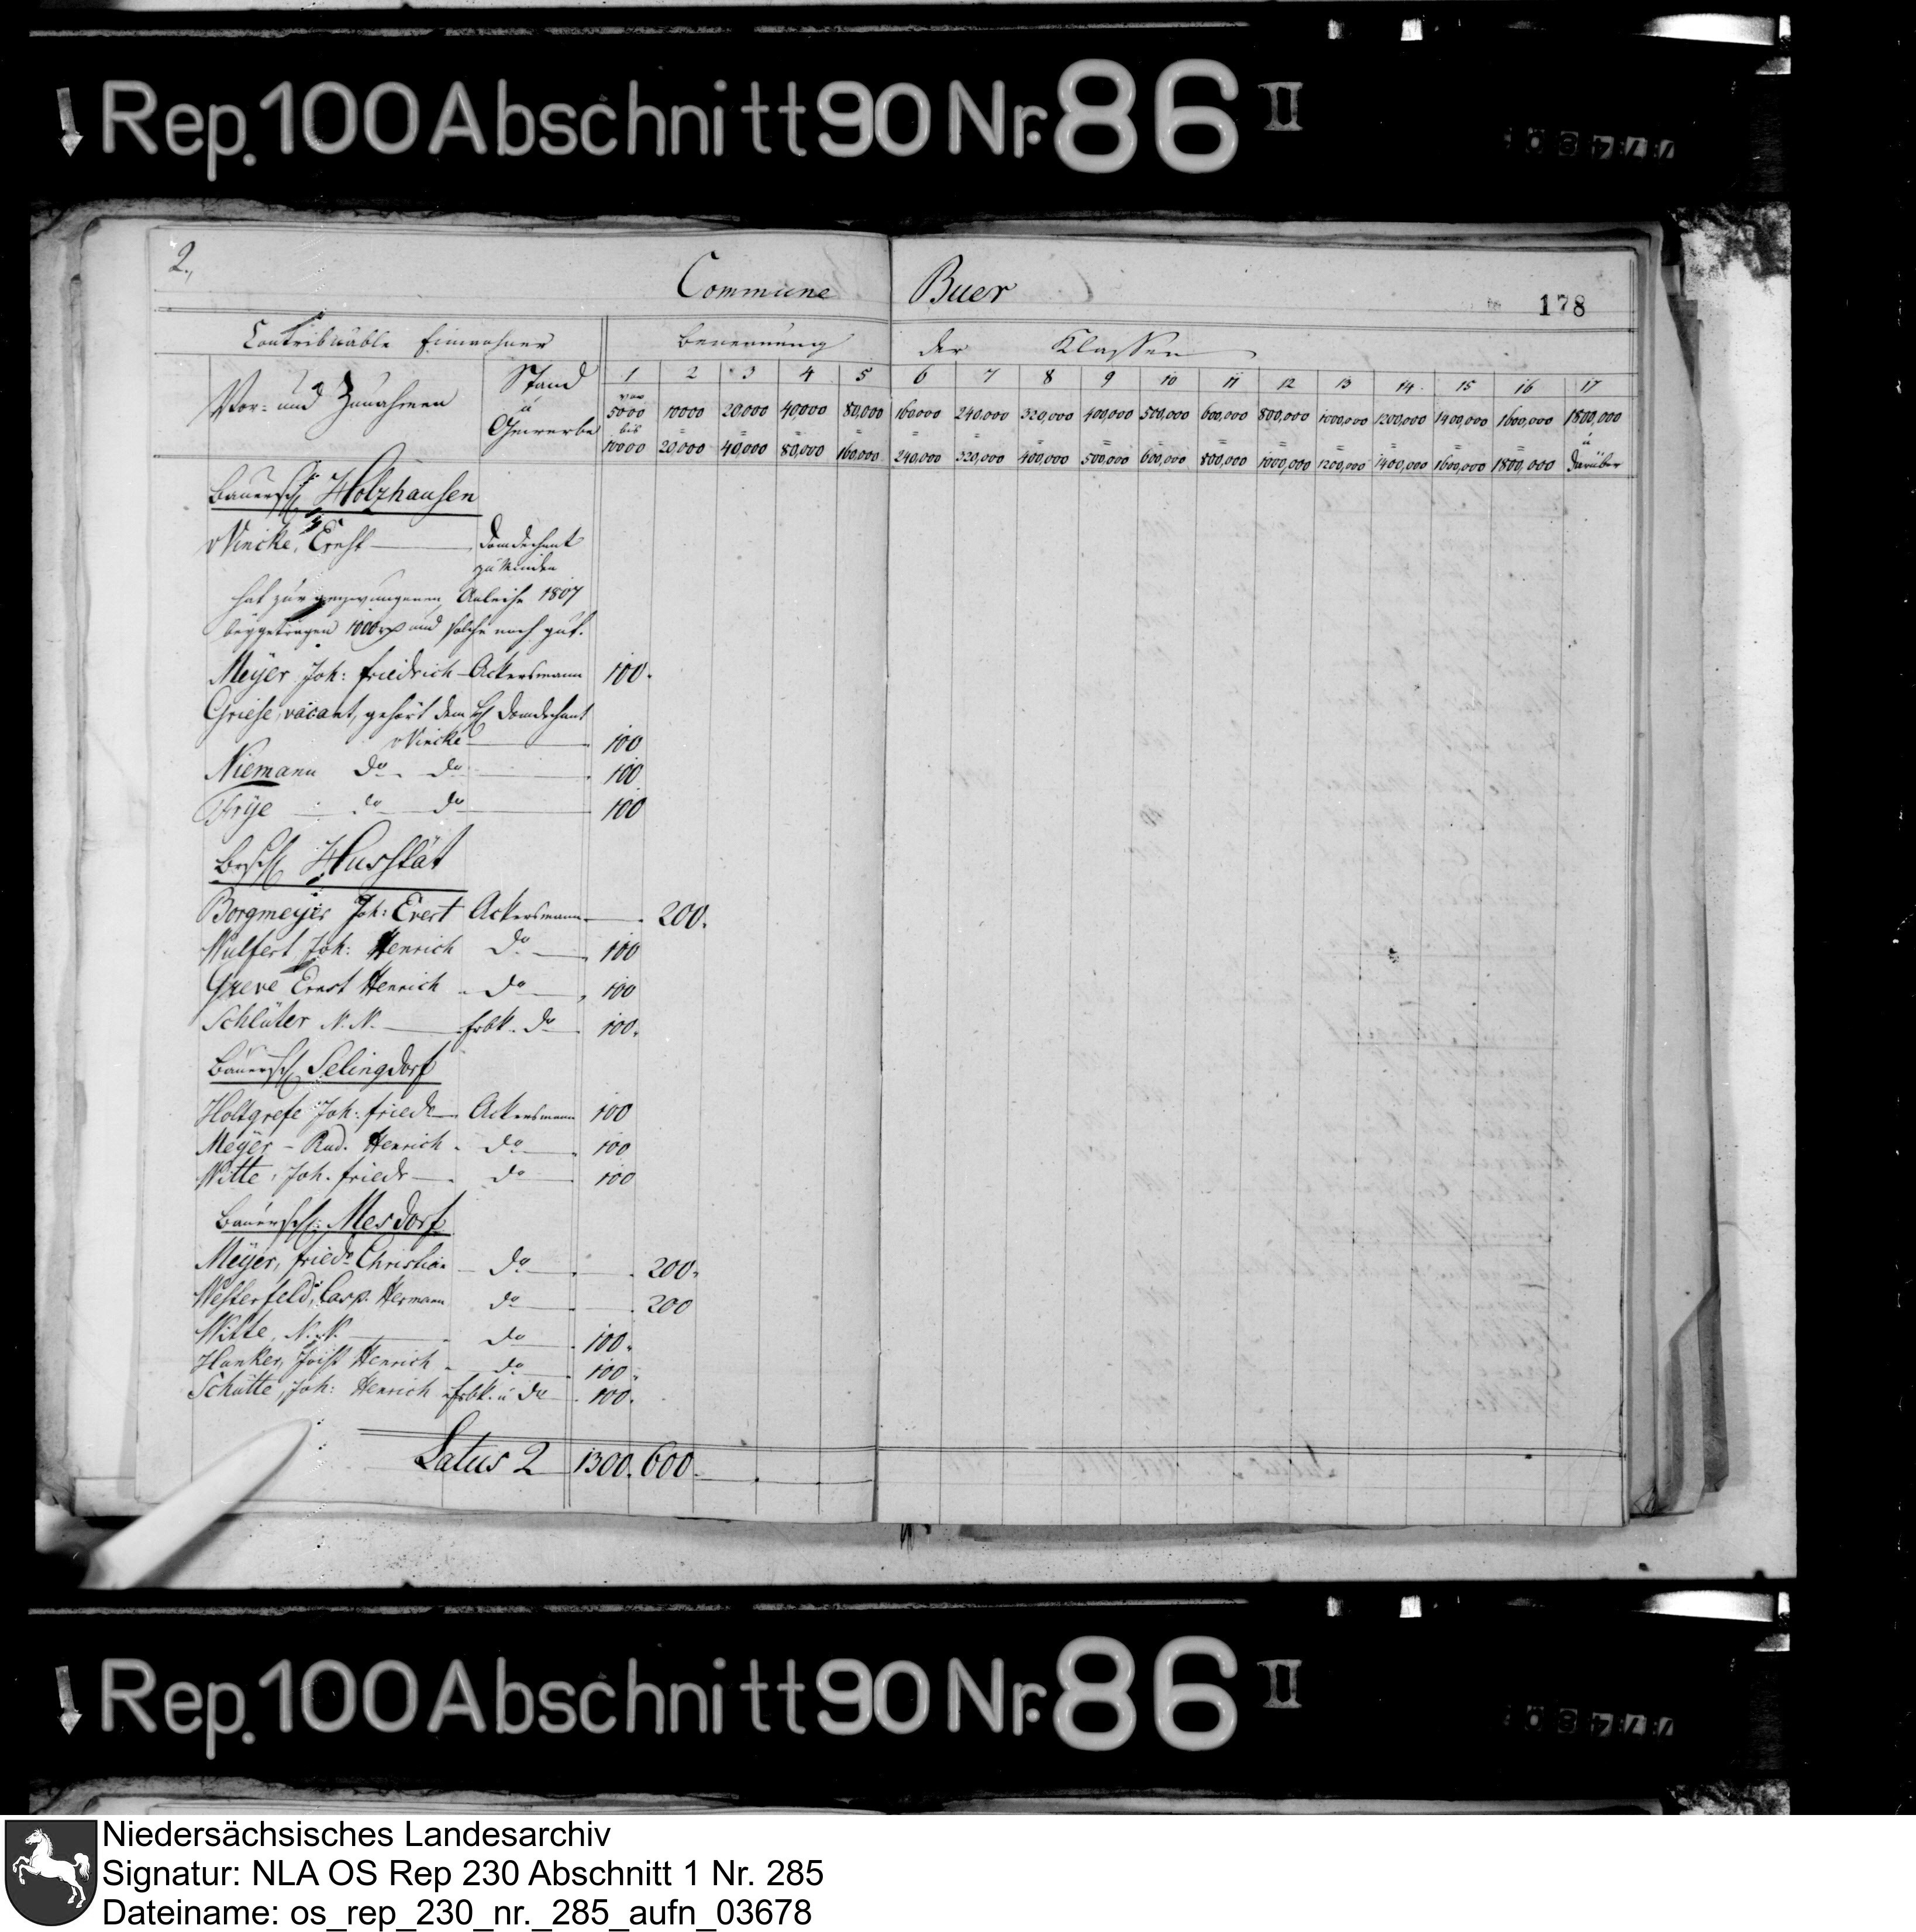 Rep. 100 Abschnitt 90 Nr. 86 II
2.,
Commune Buer
178
Contribuable Einwohner
Benennung der Klassen
Vor- und Zunahmen
Stand
u
Gewerbe
1 2 3 4 5 6 7 8 9 10 11 12 13 14 15 16 17
von
5000 10000 20,000 40000 80,000 160,000 240,000 320,000 400,000 500,000 600,000 800,000 1000,000 1200,000 1400,000 1600,000 1800,000
bis = = = = = = = = = = = = = = = u
10000 20,000 40,000 80,000 160,000 240,000 320,000 400,000 500,000 600,000 800,000 1000,000 1200,000 1400,000 1600,000 1800,000 darüber
Bauersch Holzhausen
vVincke, Ernst Domdechant
zu Minden
hat zur gezwungenen Anleihe 1807
beygetragen 1000 und solche noch gut.
Meÿer Joh: Friedrich Ackersmann 100.
Griese, vacant, gehört dem H Domdechant
vVincke 100
Niemann do do 100
do do 100
Brsch Husstät
Borgmeyer Joh: Evert Ackersmann 200.
Wulfert, Joh: Henrich do 100
Greve Ernst Henrich do 100
Schlüter N. N. do 100.
Bauersch Selingdorf
Holtgrefe Joh: Friedr Ackersmann 100
Meÿer - Rud. Henrich do 100
Witte, Joh. Friedr do 100
Bauersch: Mesdorf
Meÿer, Friedr Christian do 200.
Westerfeld, Casp. Hermann do 200
Witte, N. N. do 100.
Hunker, Joist Henrich do 100.
Schütte, Joh: Henrich u do 100.
Latus 2 1300. 600.
Rep. 100 Abschnitt 90 Nr. 86 II
Niedersächsisches Landesarchiv
Signatur: NLA OS Rep 230 Abschnitt 1 Nr. 285
Dateiname: os_rep_230_nr._285_aufn_03678